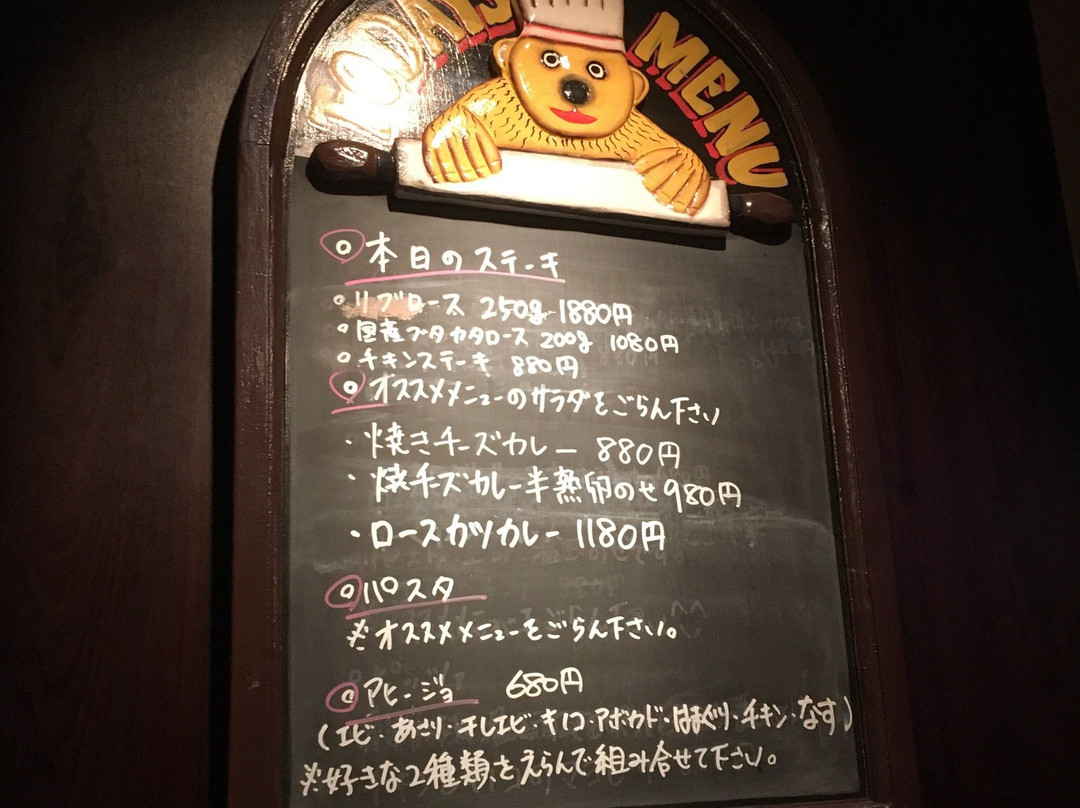 TODAY'S MENU
◎本日のステーキ
○リブロース 250g 1880円
○国産ブタカタロース 200g 1080円
○チキンステーキ 880円
◎オススメメニューのサラダをごらん下さい
・焼きチーズカレー 880円
・焼チーズカレー半熟卵のせ980円
・ロースカツカレー 1180円
◎パスタ
※オススメメニューをごらん下さい。
◎アヒージョ 680円
(エビ・あさり・干しエビ・キノコ・アボカド・はまぐり・チキン・なす)
※好きな2種類をえらんで組み合せて下さい。